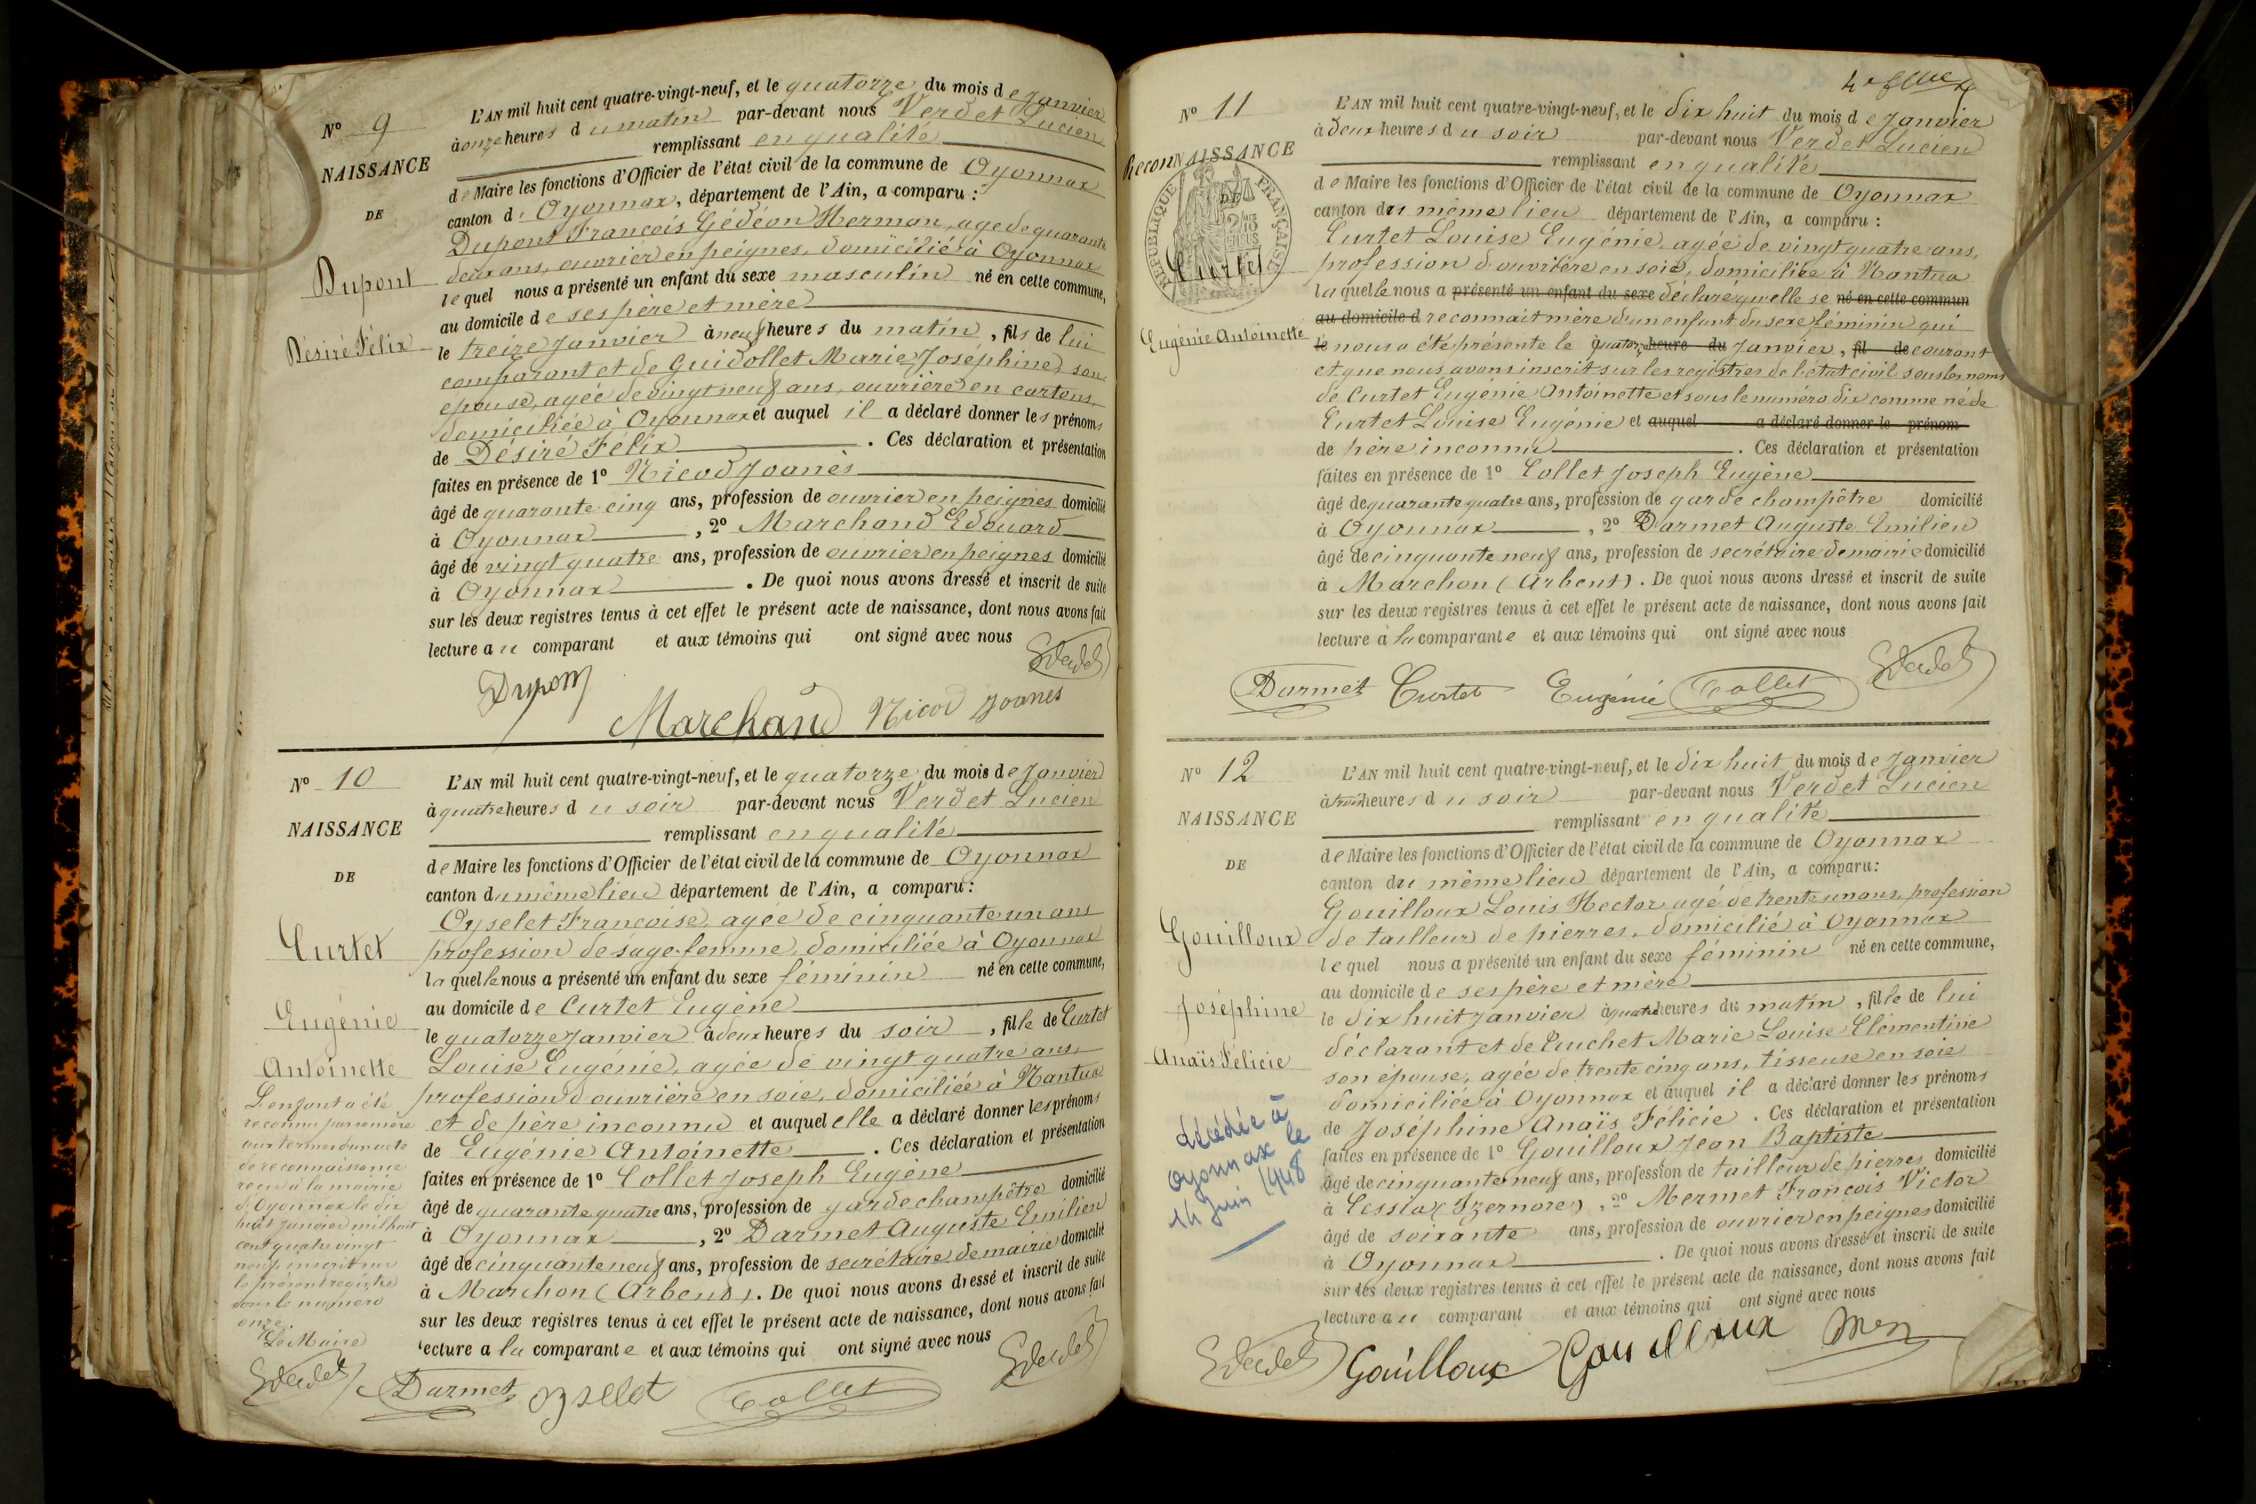 N° 9
NAISSANCE
DE
Dupont
Désiré Félix
L'AN mil huit cent quatre-vingt-neuf, et le quatorze du mois de Janvier
à onze heures du matin par-devant nous Verdet Lucien
remplissant en qualité
de Maire les fonctions d'Officier de l'état civil de la commune de Oyonnax
canton d' Oyonnax, département de l'Ain, a comparu :
Dupont François Gédéon Herman, age de quarante
deux ans, ouvrier en peignes, domicilié à Oyonnax
lequel nous a présenté un enfant du sexe masculin né en cette commune,
au domicile de ses père et mère
le treize Janvier à neuf heures du matin, fils de lui
comparant et de Guidollet Marie Josephine son
épouse, agée de vingt neuf ans, ouvrière en cartons,
domiciliée à Oyonnax et auquel il a déclaré donner les prénoms
de Désiré Félix. Ces déclaration et présentation
faites en présence de 1° Nicod Joanès
âgé de quarante cinq ans, profession de ouvrier en peignes domicilié
à Oyonnax, 2° Marchand Edouard
âgé de vingt quatre ans, profession de ouvrier en peignes domicilié
à Oyonnax. De quoi nous avons dressé et inscrit de suite
sur les deux registres tenus à cet effet le présent acte de naissance, dont nous avons fait
lecture au comparant et aux témoins qui ont signé avec nous
Dupont
Marchand Nicod Joanes
N° 10
NAISSANCE
DE
Curtet
Eugénie
Antoinette
L'enfant a été
reconnu par sa mère
aux termes d'un acte
de reconnaissance
reçu à la mairie
d'Oyonnax le dix
huit janvier mil huit
cent quatre vingt
neuf inscrit sur
le présent registre
sous le numéro
onze.
Le Maire
L'AN mil huit cent quatre-vingt-neuf, et le quatorze du mois de Janvier
à quatre heures du soir par-devant nous Verdet Lucien
remplissant en qualité
de Maire les fonctions d'Officier de l'état civil de la commune de Oyonnax
canton du même lieu département de l'Ain, a comparu :
Oyselet Françoise, agée de cinquante un ans
profession de sage-femme, domiciliée à Oyonnax
laquelle nous a présenté un enfant du sexe féminin né en cette commune,
au domicile de Curtet Eugène
le quatorze Janvier à deux heures du soir, fille de Curtet
Louise Eugénie, agée de vingt quatre ans,
profession d'ouvrière en soie, domiciliée à Nantua
et de père inconnu et auquel elle a déclaré donner les prénoms
de Eugénie Antoinette. Ces déclaration et présentation
faites en présence de 1° Collet Joseph Eugène
âgé de quarante quatre ans, profession de garde champêtre domicilié
à Oyonnax, 2° Darmet Auguste Emilien
âgé de cinquante neuf ans, profession de secrétaire de mairie domicilié
à Marchon (Arbent). De quoi nous avons dressé et inscrit de suite
sur les deux registres tenus à cet effet le présent acte de naissance, dont nous avons fait
lecture a la comparante et aux témoins qui ont signé avec nous
Darmet Oyselet Collet
N° 11
ReconNAISSANCE
DE
RÉPUBLIQUE FRANÇAISE
Curtet
Eugénie Antoinette
L'AN mil huit cent quatre-vingt-neuf, et le dix huit du mois de Janvier
à deux heures du soir par-devant nous Verdet Lucien
remplissant en qualité
de Maire les fonctions d'Officier de l'état civil de la commune de Oyonnax
canton du même lieu département de l'Ain, a comparu :
Curtet Louise Eugénie agée de vingt quatre ans,
profession d'ouvrière en soie, domiciliée à Nantua
laquelle nous a présenté un enfant du sexe déclaré qu'elle se né en cette commun
au domicile d reconnait mère d'un enfant du sexe féminin qui
le nous a été présenté le quatorze heure du Janvier, fil de courant
et que nous avons inscrit sur les registres de l'état civil sous les noms
de Curtet Eugénie Antoinette et sous le numéro dix comme né de
Curtet Louise Eugénie et auquel a déclaré donner le prénom
de père inconnu. Ces déclaration et présentation
faites en présence de 1° Collet Joseph Eugène
âgé de quarante quatre ans, profession de garde champêtre domicilié
à Oyonnax, 2° Darmet Auguste Emilien
âgé de cinquante neuf ans, profession de secrétaire de mairie domicilié
à Marchon (Arbent). De quoi nous avons dressé et inscrit de suite
sur les deux registres tenus à cet effet le présent acte de naissance, dont nous avons fait
lecture à la comparante et aux témoins qui ont signé avec nous
Darmet Curtet Eugénie Collet
N° 12
NAISSANCE
DE
Gouilloux
Joséphine
Anaïs Félicie
décédée à
Oyonnax le
14 juin 1948
L'AN mil huit cent quatre-vingt-neuf, et le dix huit du mois de Janvier
à trois heures du soir par-devant nous Verdet Lucien
remplissant en qualité
de Maire les fonctions d'Officier de l'état civil de la commune de Oyonnax
canton du même lieu département de l'Ain, a comparu :
Gouilloux Louis Hector agé de trente un ans, profession
de tailleur de pierres, domicilié à Oyonnax
lequel nous a présenté un enfant du sexe féminin né en cette commune,
au domicile de ses père et mère
le dix huit janvier à quatre heures du matin, fille de lui
déclarant et de Puchet Marie Louise Clémentine
son épouse, agée de trente cinq ans, tisseuse en soie
domiciliée à Oyonnax et auquel il a déclaré donner les prénoms
de Joséphine Anaïs Félicie. Ces déclaration et présentation
faites en présence de 1° Gouilloux Jean Baptiste
âgé de cinquante neuf ans, profession de tailleur de pierres domicilié
à Cessiat (Izernore), 2° Mermet François Victor
âgé de soixante ans, profession de ouvrier en peignes domicilié
à Oyonnax. De quoi nous avons dressé et inscrit de suite
sur les deux registres tenus à cet effet le présent acte de naissance, dont nous avons fait
lecture au comparant et aux témoins qui ont signé avec nous
Gouilloux Gouilloux